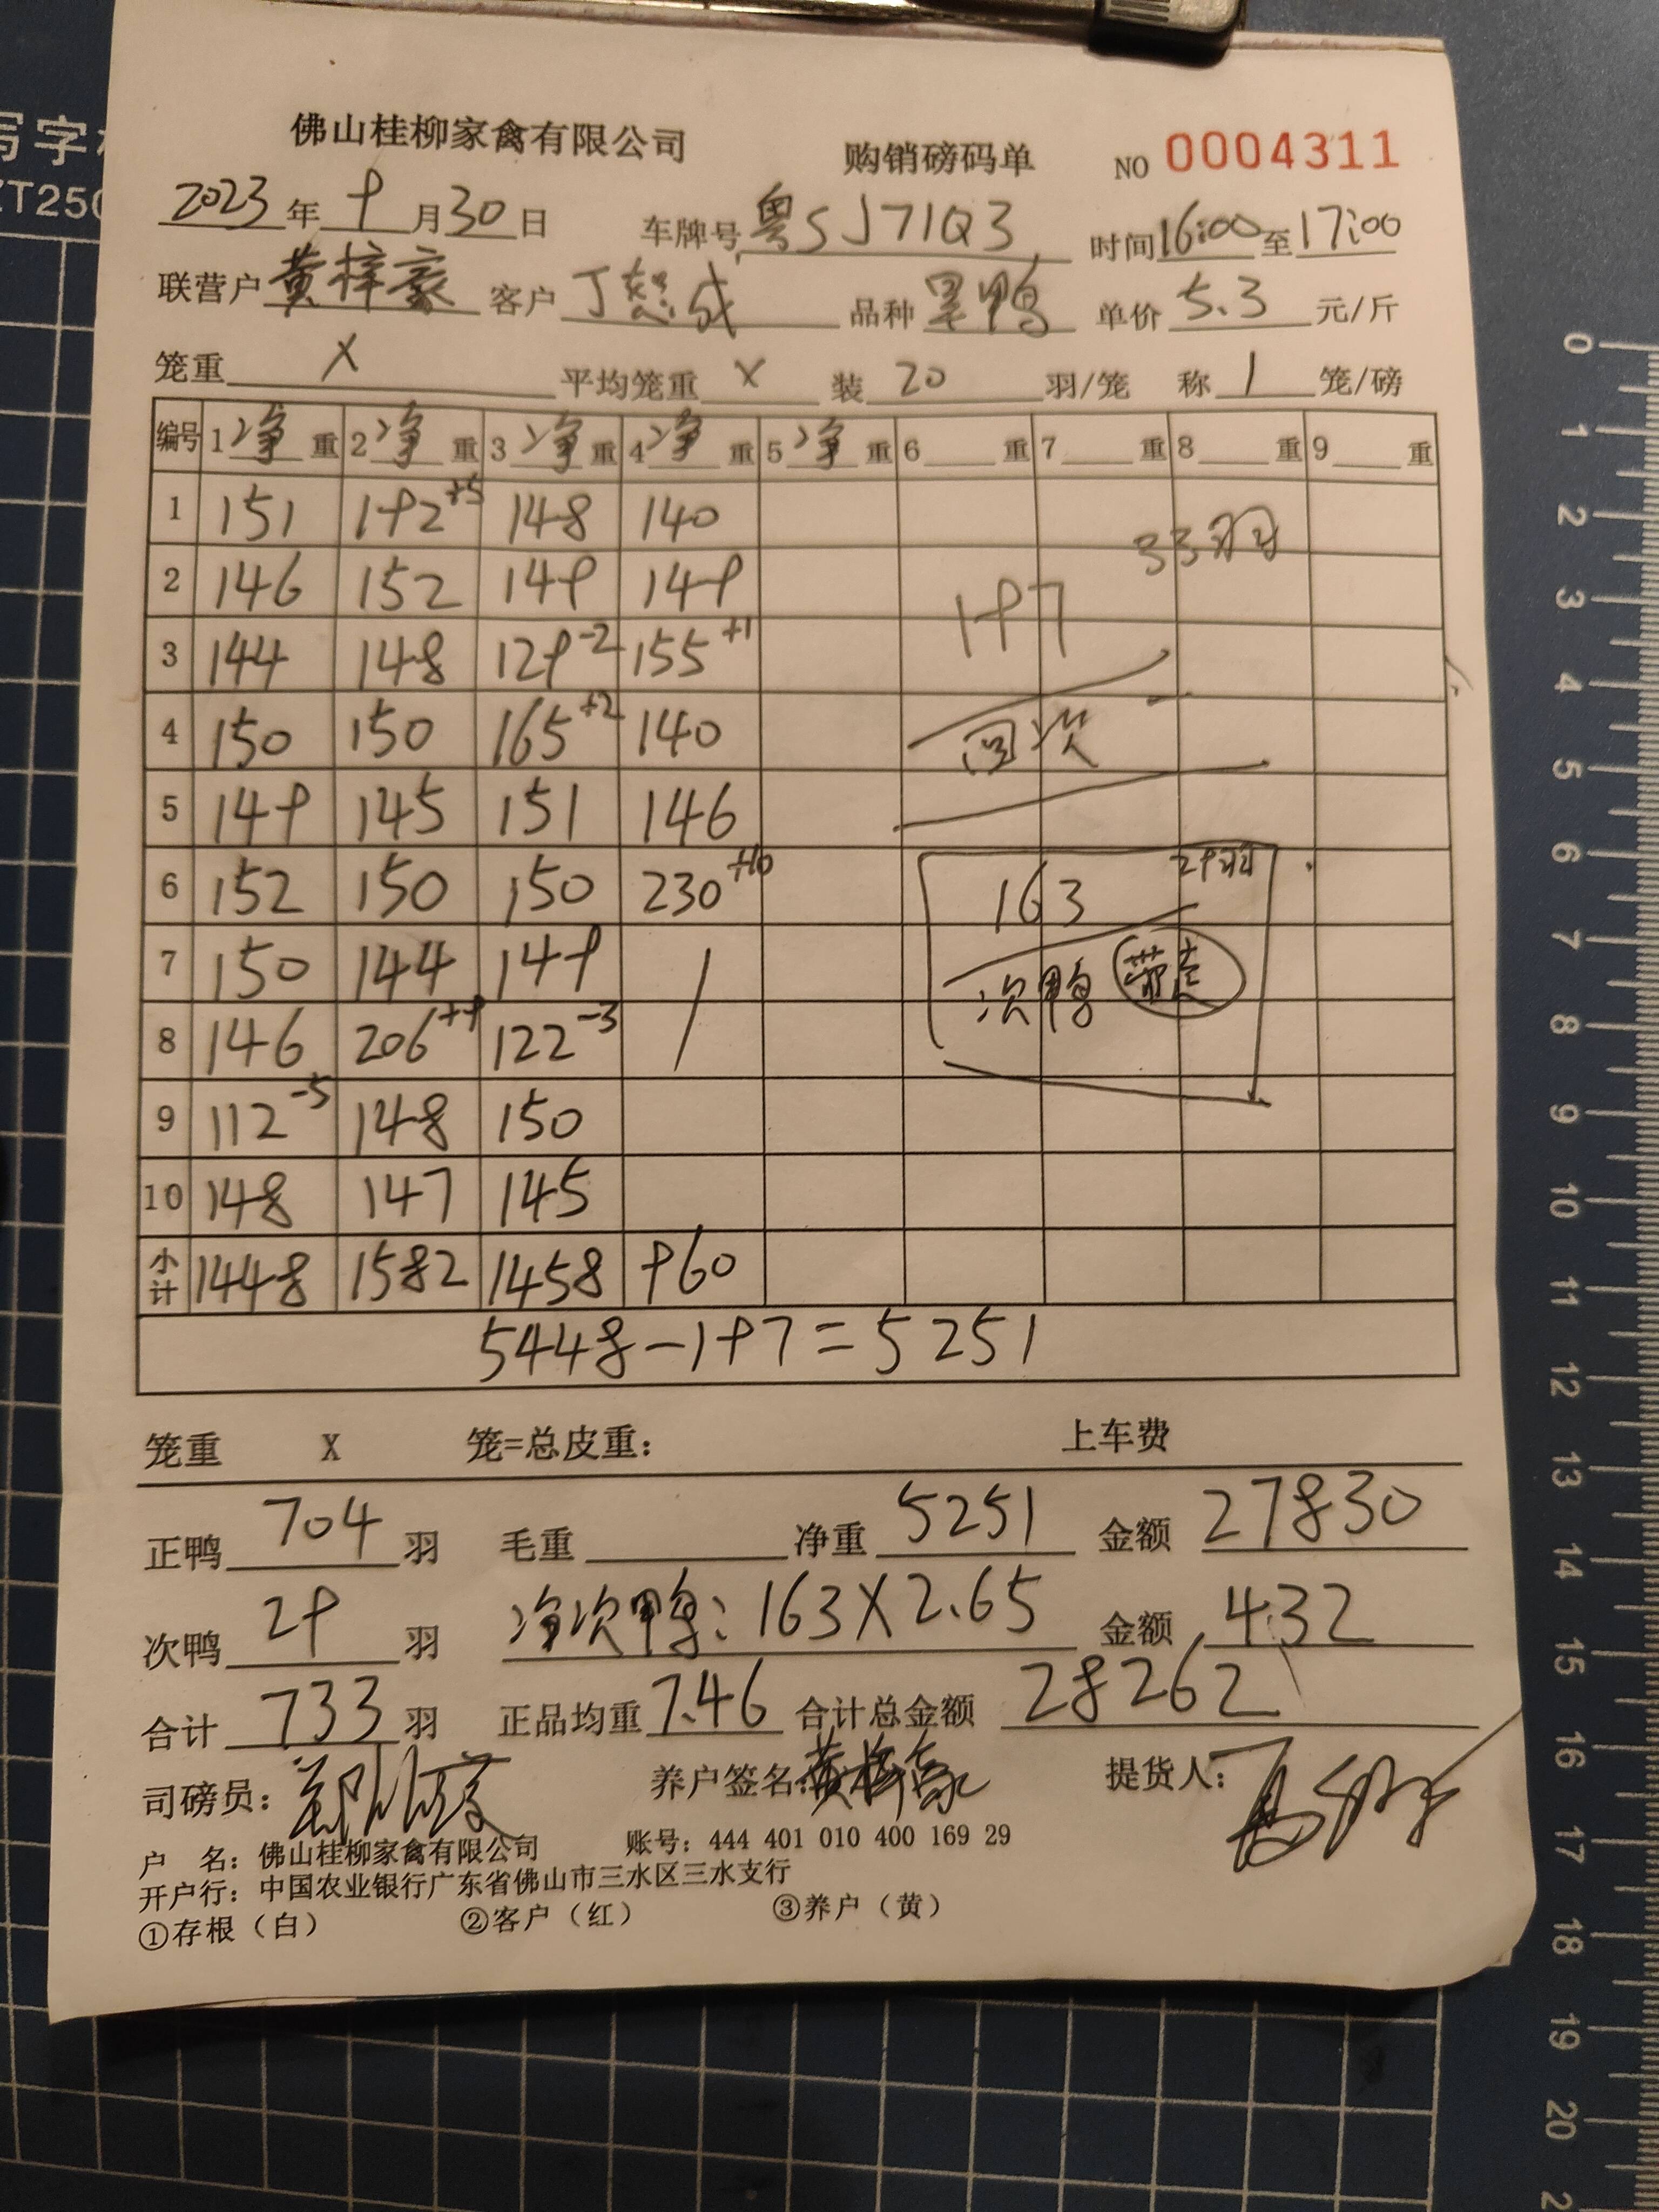 写字
ZT250
佛山桂柳家禽有限公司 购销磅码单 NO 0004311
2023年9月30日 车牌号粤SJ71Q3 时间16:00至17:00
联营户黄梓豪 客户 品种黑鸭 单价5.3元/斤
笼重 X 平均笼重 X 装 20 羽/笼 称 1 笼/磅
编号 1净重 2净重 3净重 4净重 5净重 6重 7重 8重 9重
1 151 192+5 148 140
33羽
2 146 152 149 149
197
3 144 148 129-2 155+1
4 150 150 165+2 140
回次
5 149 145 151 146
6 152 150 150 230+10
163 29羽
7 150 144 149
次鸭 带走
8 146 206+9 122-3
9 112-5 148 150
10 148 147 145
小计 1448 1582 1458 960
5448-197=5251
笼重 X 笼=总皮重: 上车费
正鸭 704 羽 毛重 净重 5251 金额 27830
次鸭 29 羽 净次鸭: 163X2.65 金额 432
合计 733 羽 正品均重 7.46 合计总金额 28262
司磅员: 养户签名:黄梓豪 提货人:
户 名: 佛山桂柳家禽有限公司 账号: 444 401 010 400 169 29
开户行: 中国农业银行广东省佛山市三水区三水支行
①存根（白） ②客户（红） ③养户（黄）
0
1
2
3
4
5
6
7
8
9
10
11
12
13
14
15
16
17
18
19
20